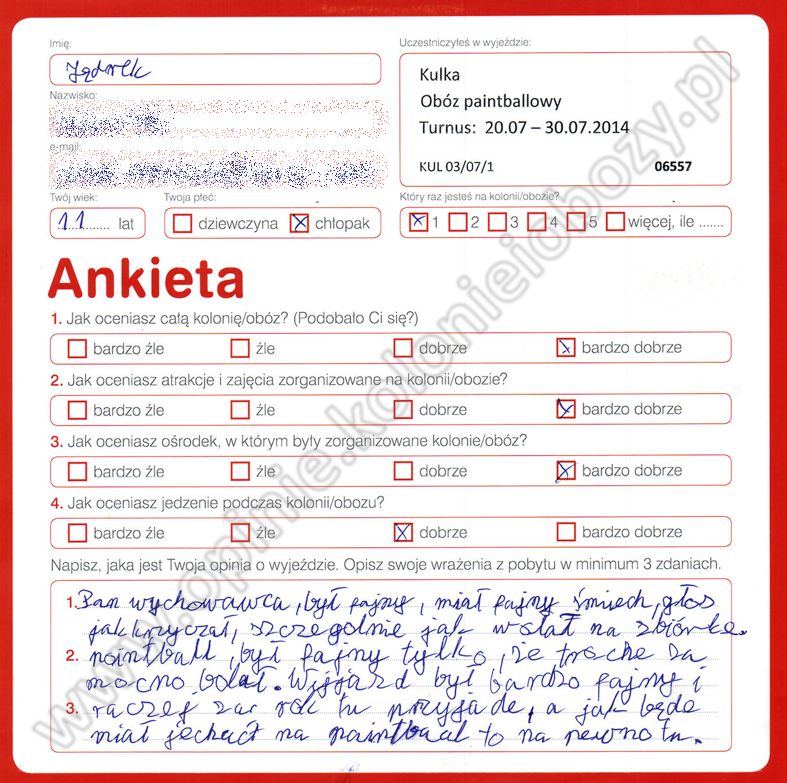 Imię:
Uczestniczyłeś w wyjeździe:
Jędrek
Kulka
Obóz paintballowy
Turnus: 20.07 – 30.07.2014
KUL 03/07/1 06557
Nazwisko:
e-mail:
Twój wiek:
Twoja płeć:
Który raz jesteś na kolonii/obozie?
11 lat
dziewczyna chłopak
1 2 3 4 5 więcej, ile .......
Ankieta
1. Jak oceniasz całą kolonię/obóz? (Podobało Ci się?)
bardzo źle źle dobrze bardzo dobrze
2. Jak oceniasz atrakcje i zajęcia zorganizowane na kolonii/obozie?
bardzo źle źle dobrze bardzo dobrze
3. Jak oceniasz ośrodek, w którym były zorganizowane kolonie/obóz?
bardzo źle źle dobrze bardzo dobrze
4. Jak oceniasz jedzenie podczas kolonii/obozu?
bardzo źle źle dobrze bardzo dobrze
Napisz, jaka jest Twoja opinia o wyjeździe. Opisz swoje wrażenia z pobytu w minimum 3 zdaniach.
1. Pan wychowawca, był fajny, miał fajny śmiech, głos
jak krzyczał, szczegolnie jak wołał na zbiórke.
2. paintball, był fajny tylko, że troche za
mocno bolał. Wyjazd był bardzo fajny i
3. raczej za rok tu przyjade, a jak będe
miał jechać na paintbaal to na pewno tu.
www.opinie.kolonieiobozy.pl